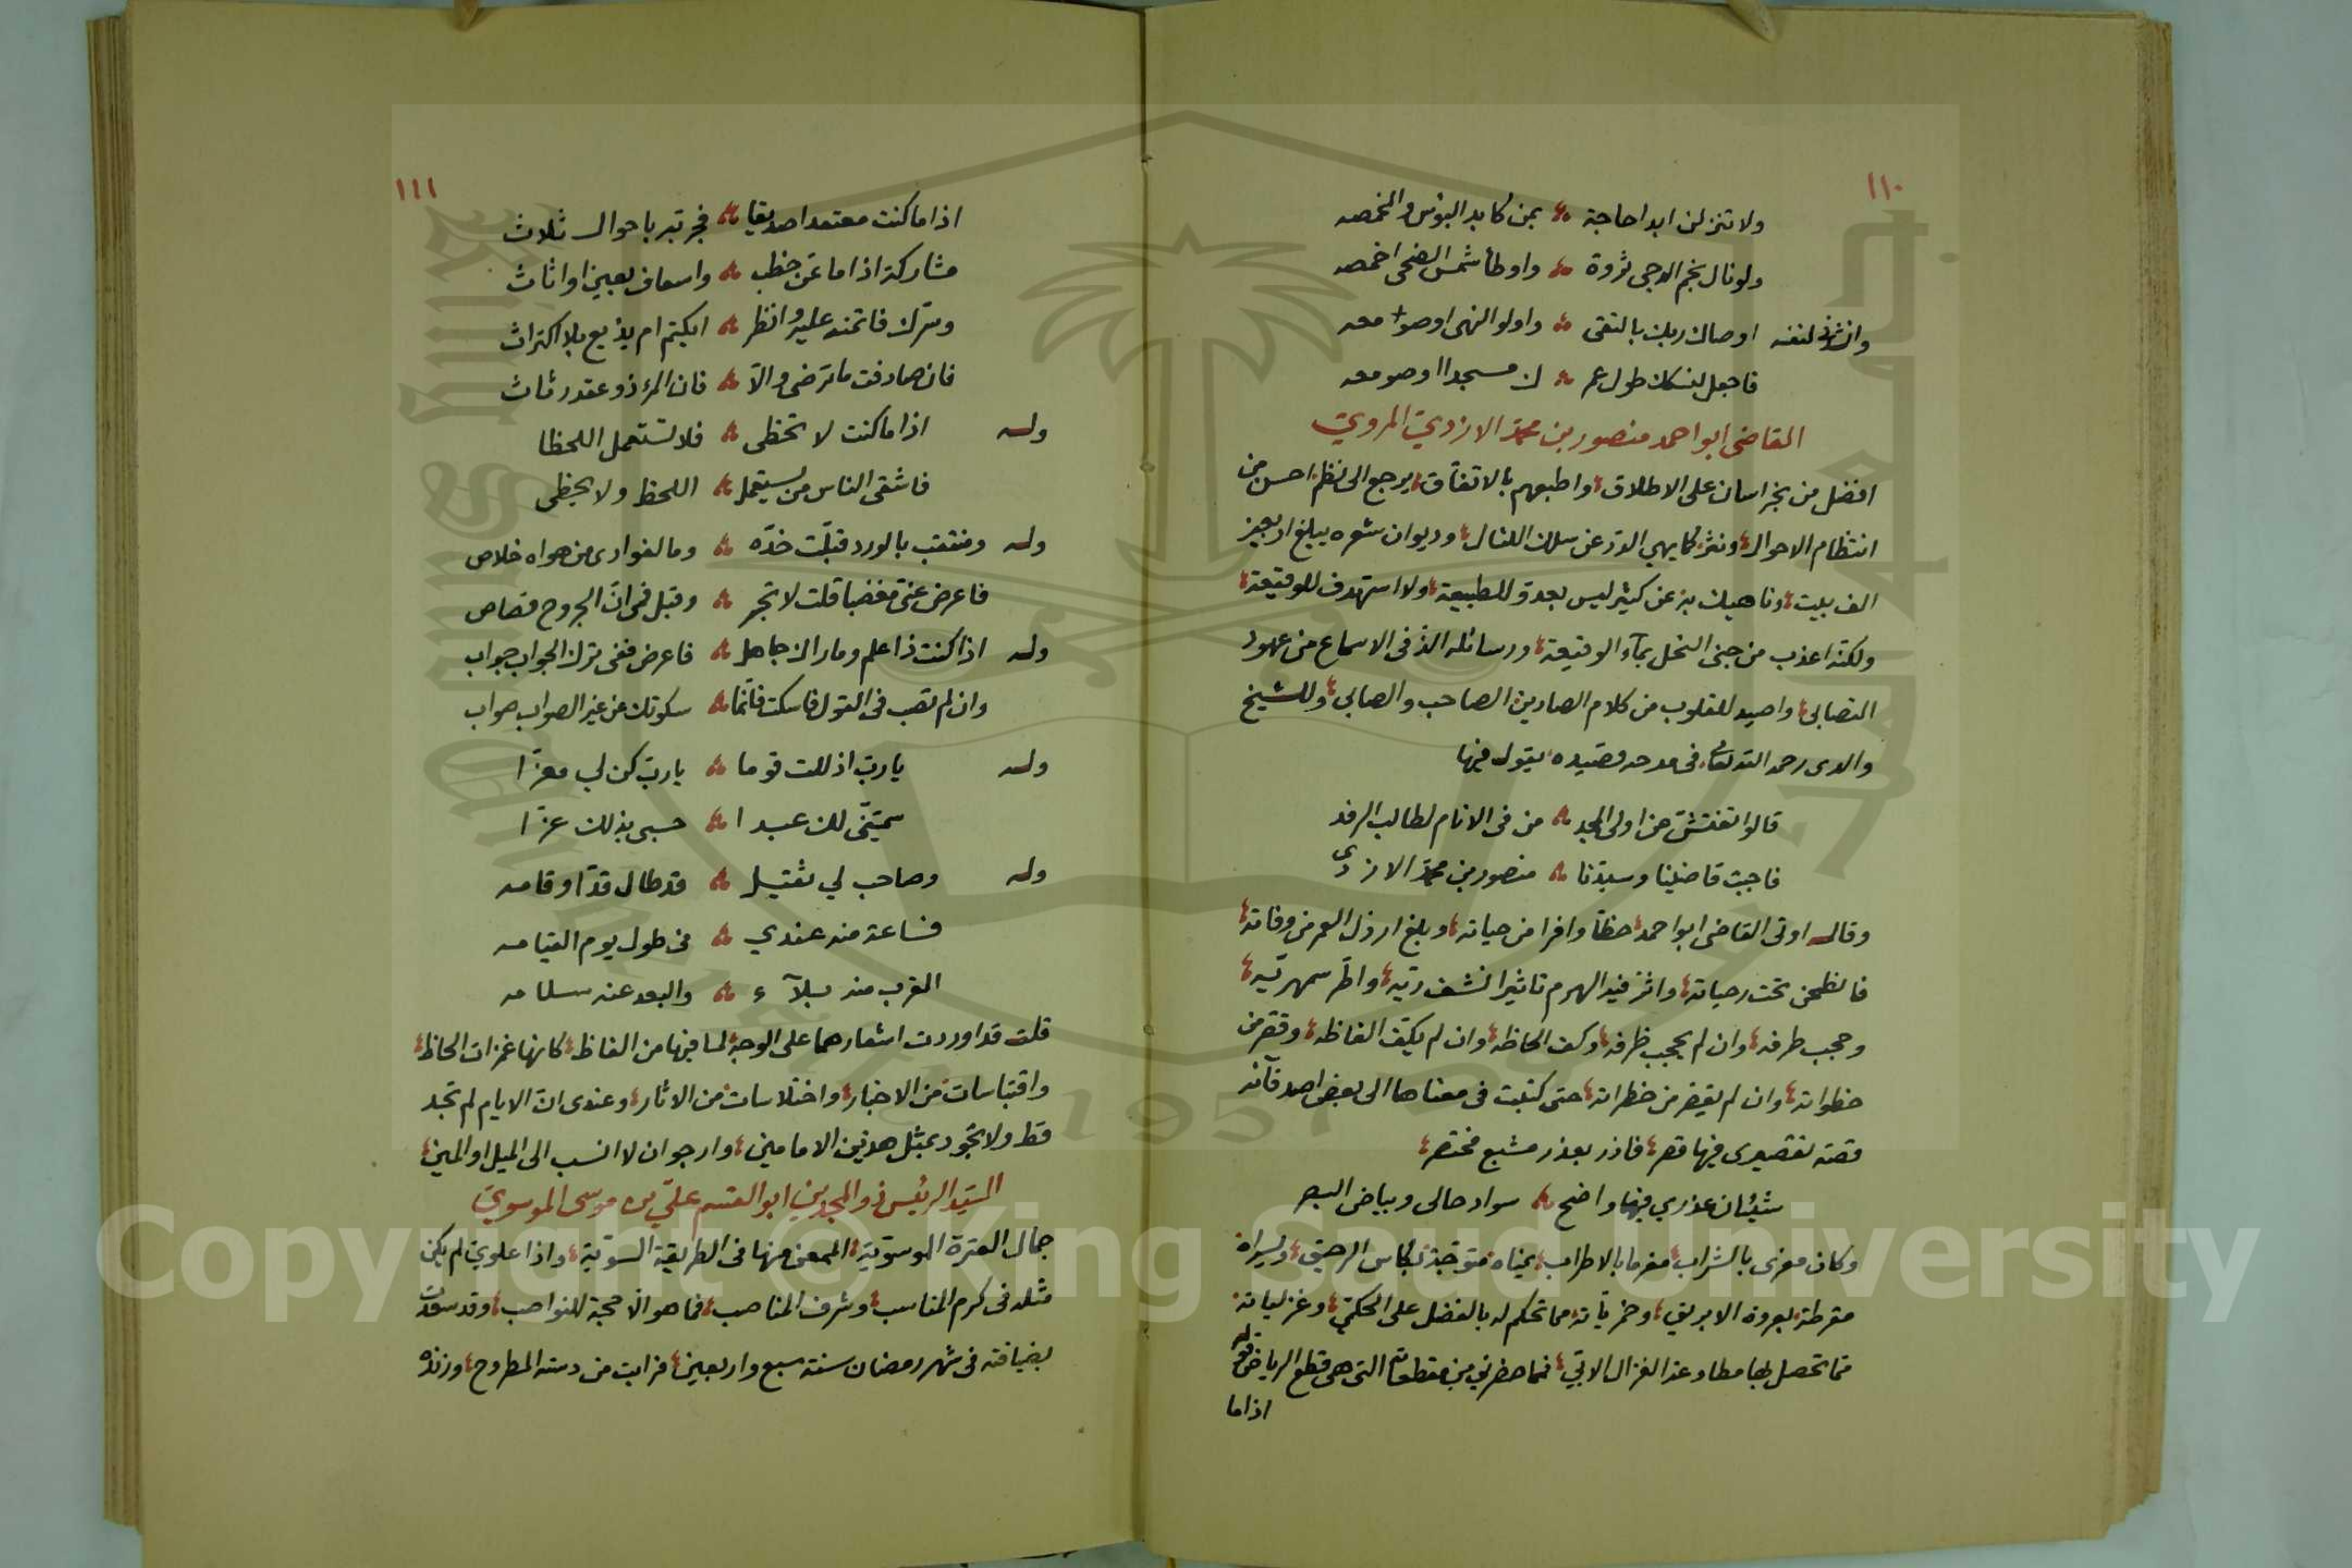 ١١٠
ولا تنزلن ابدا حاجة ؞ بمن كابد البؤس والمخمصه
ولو نال نجم الدجى ثروة ؞ واوطأ شمس الضحى اخمصه
وانشدنى لنفسه اوصاك ربك بالتقى ؞ واولو النهى اوصوا معه
فاجعل لنسكك طول عمر ؞ ك مسجدا او صومعه
القاضى ابو احمد منصور بن محمد الازدي الهروي
افضل من بخراسان على الاطلاق، واطبعهم بالاتفاق، يرجع الى نظم احسن من
انتظام الاحوال، ونثر كما يهي الدر عن سلك اللئال، وديوان شعره يبلغ اربعين
الف بيت، وناهيك به عن كثير ليس بعدو للطبيعة، ولا استهدف للوقيعة،
ولكنه اعذب من جنى النحل بمآء الوقيعة، ورسائله الذ فى الاسماع من عهود
التصابى، واصيد للقلوب من كلام الصادين الصاحب والصابى، وللشيخ
والدى رحمه الله تعالى فى مدحه قصيده يقول فيها
قالوا تفتش عن اولى المجد ؞ من فى الانام لطالب الرفد
فاجبت قاضينا وسيدنا ؞ منصور بن محمد الازدى
وقال اوتى القاضى ابو احمد حظا وافرا من حياته، وبلغ ارذل العمر من وفاته،
فانطحن تحت رحياته، واثر فيه الهرم تاثيرا نشف ريه، واطر سمهريه،
وحجب طرفه، وان لم يحجب ظرفه، وكف الحاظه، وان لم يكف الفاظه، وقصر من
خطواته، وان لم يقصر من خطراته، حتى كتبت فى معناها الى بعض اصدقآئه
قصة تقصيرى فيها قصر، فاذر بعذر مشبع مختصر،
شيئان عذري فيهما واضح ؞ سواد حالى وبياض البصر
وكان مغرى بالشراب، مغرما بالاطراب، يمناه متوجة بكاس الرحيق، ويسراه
مقرطة بعروة الابريق، وخمرياته مما تحكم له بالفضل على الحكمي، وغزلياته
مما تحصل بها مطاوعة الغزال الابي، فما حضرني من مقطعاته التى هى قطع الرياض قوله
اذا ما
١١١
اذا ما كنت معتمدا صديقا ؞ فجربه باحوال ثلاث
مشاركة اذا ما عن خطب ؞ واسعاف بعين او اثاث
وسرك فاتمنه عليه وانظر ؞ ايكتم ام يذيع بلا اكتراث
فان صادفت ما ترضى والا ؞ فان المرء ذو عقد رثاث
وله اذا ما كنت لا تحظى ؞ فلا تستعمل اللحظا
فاشقى الناس من يستعمل ؞ اللحظ ولا يحظى
وله ومنتقب بالورد قبلت خده ؞ وما لفوادى من هواه خلاص
فاعرض عنى مغضبا قلت لا تجر ؞ وقبل فى ان الجروح قصاص
وله اذا كنت ذا علم وماراك جاهل ؞ فاعرض ففى ترك الجواب جواب
وان لم تصب فى القول فاسكت فانما ؞ سكوتك عن غير الصواب صواب
وله يا رب اذللت قوما ؞ يا رب كن لي معزا
سميتنى لك عبدا ؞ حسبى بذلك عزا
وله وصاحب لي ثقيل ؞ قد طال قدا وقامه
فساعة منه عندي ؞ فى طول يوم القيامه
القرب منه بلآء ؞ والبعد عنه سلامه
قلت قد اوردت اشعارهما على الوجه لما فيها من الفاظ، كانها غمزات الحاظ،
واقتباسات من الاخبار، واختلاسات من الاثار، وعندى ان الايام لم تجد
قط ولا تجود بمثل هذين الامامين، وارجو ان لا انسب الى الميل او المين،
السيد الرئيس ذو المجدين ابو القسم علي بن موسى الموسوي
جمال العترة الموسوية، الممعن منها فى الطريقة السوية، واذا علوي لم يكن
مثله فى كرم المناسب، وشرف المناصب، فما هو الا حجة للنواصب، وقد سعدت
بضيافته فى شهر رمضان سنة سبع واربعين، فرايت من دسته المطروح، وزنده
Copyright © King Saud University
1957